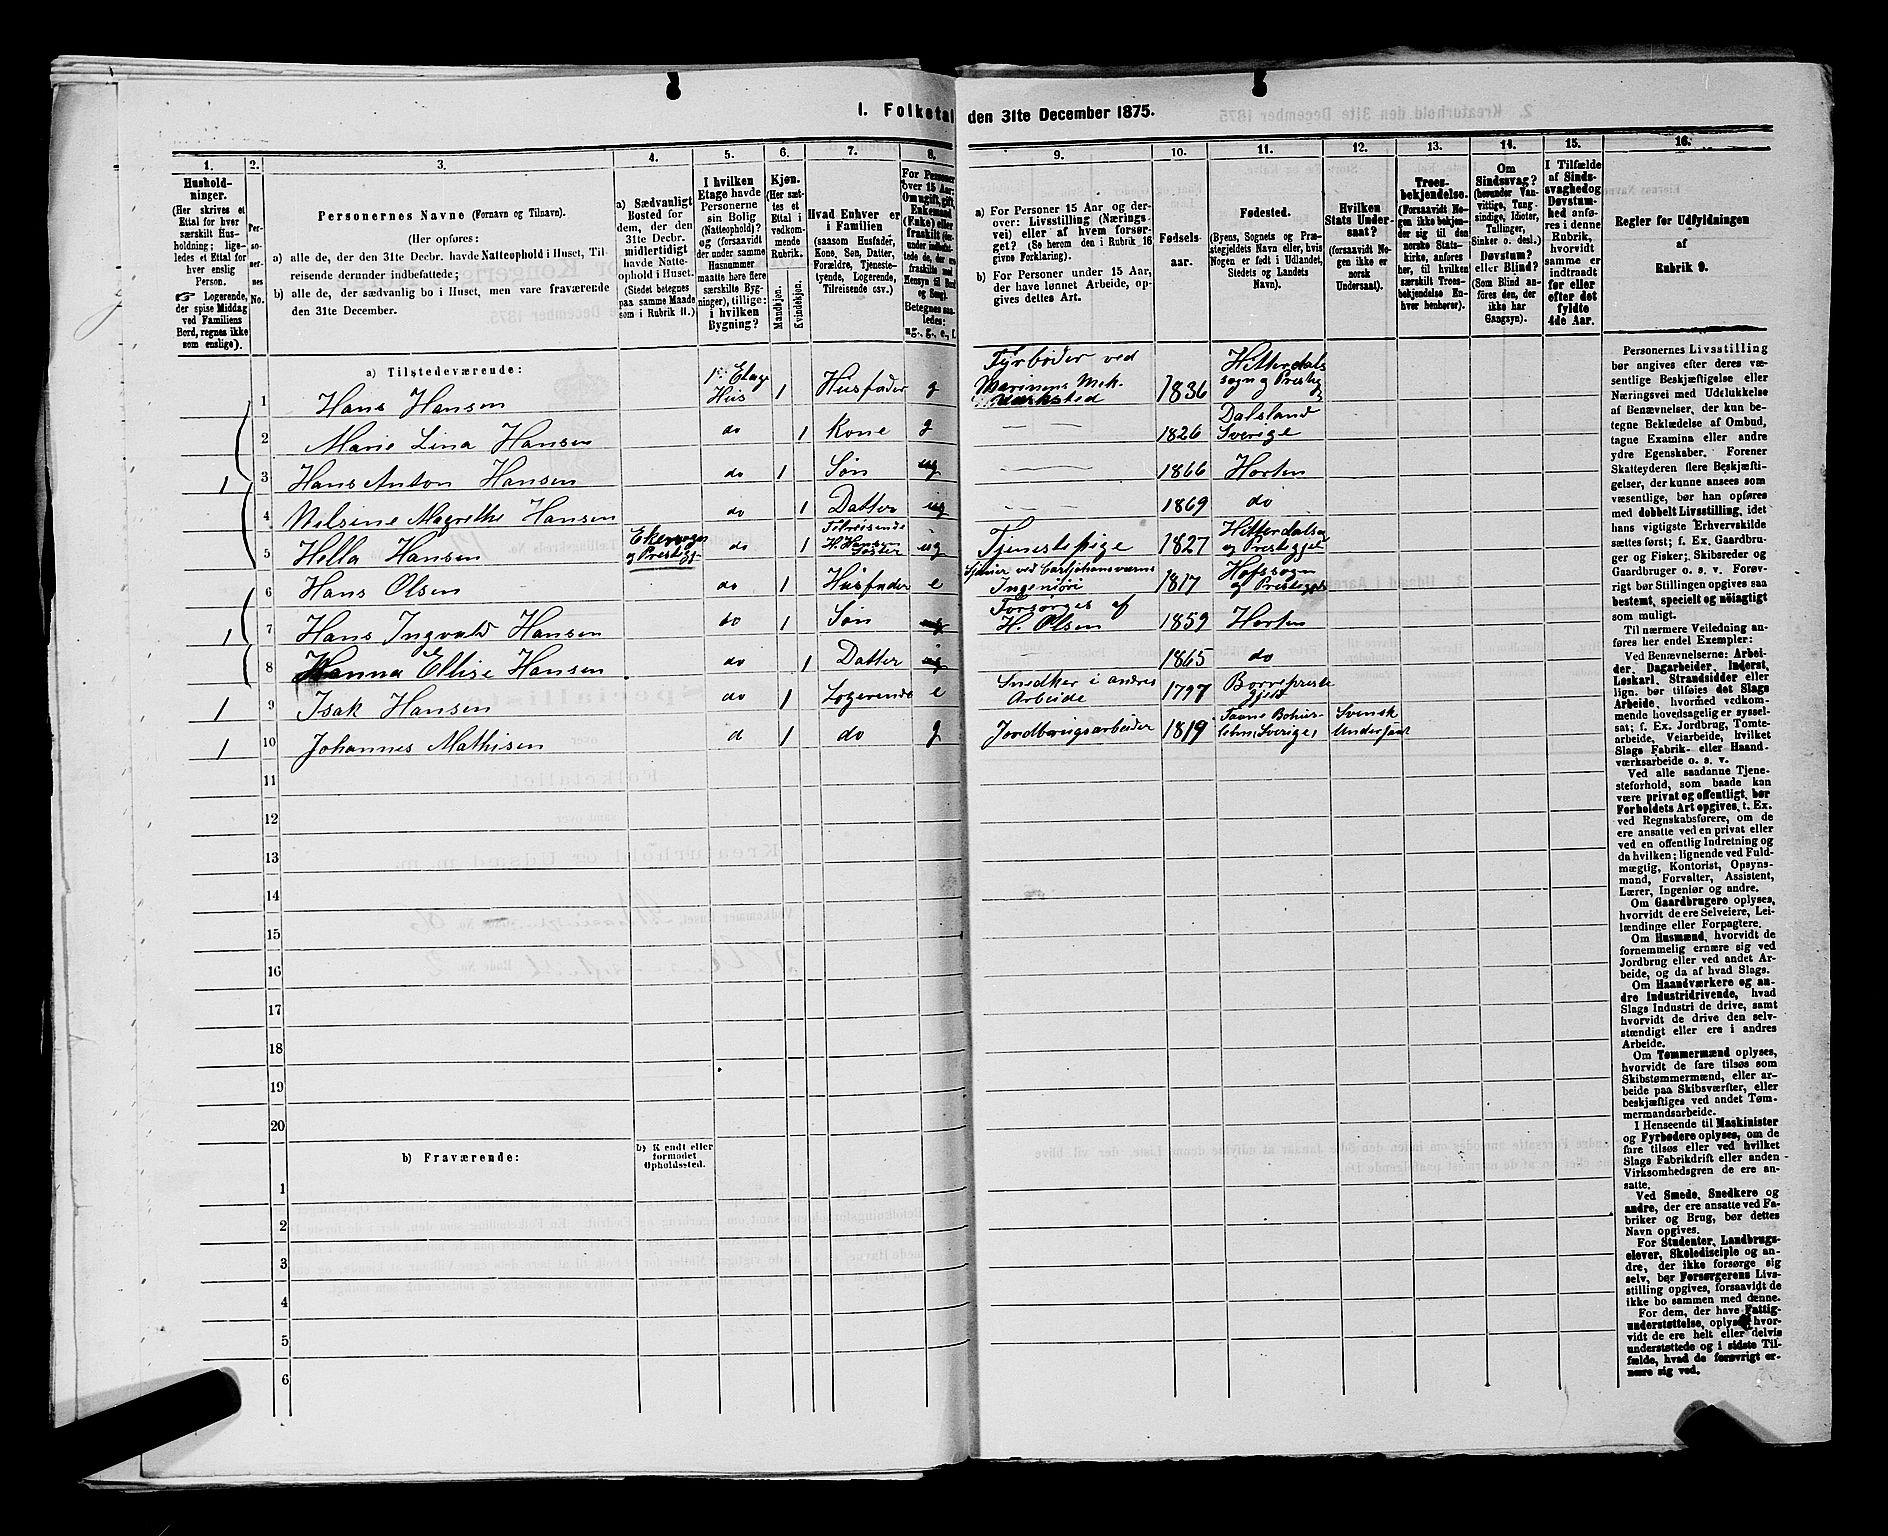 I. Folketal den 31te December 1875.
1. 2. 3. 4. 5. 6. 7. 8. 9. 10. 11. 12. 13. 14. 15. 16.
Husholdninger.
(Her skrives et Ettal for hver særskilt Husholdning; ligeledes et Ettal for hver enslig Person.
☞ Logerende, der spise Middag ved Familiens Bord, regnes ikke som enslige).
Personernes No.
Personernes Navne (Fornavn og Tilnavn).
(Her opføres:
a) alle de, der den 31te Decbr. havde Natteophold i Huset, Tilreisende derunder indbefattede;
b) alle de, der sædvanlig bo i Huset, men vare fraværende den 31te December.
a) Sædvanligt Bosted for dem, der den 31te Decbr. midlertidigt havde Natteophold i Huset. (Stedet betegnes paa samme Maade som i Rubrik 11.)
I hvilken Etage havde Personerne sin Bolig (Natteophold)? og (forsaavidt der under samme Husnummer maatte høre flere særskilte Bygninger), tillige: i hvilken Bygning?
Kjøn.
(Her sættes et Ettal i vedkommende Rubrik.
Mandkjøn. Kvindekjøn.
Hvad Enhver er i Familien
(saasom Husfader, Kone, Søn, Datter, Forældre, Tjenestetyende, Logerende, Tilreisende osv.)
For Personer over 15 Aar: Om ugift, gift, Enkemand (Enke) eller fraskilt
Betegnes saaledes: ug., g., e., f.
a) For Personer 15 Aar og derover: Livsstilling (Næringsvei) eller af hvem forsørget? (Se herom den i Rubrik 16 givne Forklaring).
b) For Personer under 15 Aar, der have lønnet Arbeide, opgives dettes Art.
Fødselsaar.
Fødested.
(Byens, Sognets og Præstegjeldets Navn eller, hvis Nogen er født i Udlandet, Stedets og Landets Navn).
Hvilken Stats Undersaat?
(forsaavidt Nogen ikke er norsk Undersaat).
Troesbekjendelse.
(Forsaavidt Nogen ikke bekjender sig til den norske Statskirke, anføres her, til hvilken særskilt Troesbekjendelse Enhver henhører).
Om Sindssvag? (herunder Vanvittige, Tungsindige, Idioter, Tullinger, Sinker o. desl.) Døvstum? eller Blind? (Som Blind anføres den, der ikke har Gangsyn).
I Tilfælde af Sindssvaghed og Døvstumhed anføres i denne Rubrik, hvorvidt samme er indtraadt før eller efter det fyldte 4de Aar.
Regler for Udfyldningen
af
Rubrik 9.
a) Tilstedeværende:
1 Hans Hansen 1ste Etage Hus 1 Husfader g Fyrbøder ved Marinens Mek Værksted 1836 Hitterdals sogn og Presteg
2 Marie Lina Hansen do 1 Kone g 1826 Dalsland Sverige
1 3 Hans Anton Hansen do 1 Søn ug 1866 Horten
4 Nilsine Magrethe Hansen do 1 Datter ug 1869 do
5 Hella Hansen og Prestegj do 1 Tilreisende H. Hansen Søster ug Tjenestepige 1827 Hitterdals og Prestegjel
6 Hans Olsen do 1 Husfader e ved Carljohansværns Ingeniøri 1817 Hofssogn og Prestegjel
1 7 Hans Ingvald Hansen do 1 Søn ug Forsørges af H. Olsen 1859 Horten
8 Hanna Ellise Hansen do 1 Datter ug 1865 do
1 9 Isak Hansen do 1 Logerende e Snedker i andres Arbeide 1797 Borrepreste gjeld
1 10 Johannes Mathisen d 1 do g Jordbrugsarbeider 1819 Bohuslehn, Sverige, Svensk Undersaat
11
12
13
14
15
16
17
18
19
20
b) Fraværende:
b) Kjendt eller formodet Opholdssted.
1
2
3
4
5
6
Personernes Livsstilling bør angives efter deres væsentlige Beskjæftigelse eller Næringsvei med Udelukkelse af Benævnelser, der kun betegne Beklædelse af Ombud, tagne Examina eller andre ydre Egenskaber. Forener Skatteyderen flere Beskjæftigelser, der kunne ansees som væsentlige, bør han opføres med dobbelt Livsstilling, idet hans vigtigste Erhvervskilde sættes først; f. Ex. Gaardbruger og Fisker; Skibsreder og Gaardbruger o. s. v. Forøvrigt bør Stillingen opgives saa bestemt, specielt og nöiagtigt som muligt.
Til nærmere Veiledning anføres her endel Exempler:
Ved Benævnelserne: Arbeider, Dagarbeider, Inderst, Løskarl, Strandsidder eller lign. bør tilføies det Slags Arbeide, hvormed vedkommende hovedsagelig er sysselsat; f. Ex. Jordbrug, Tomtearbeide, Veiarbeide, hvilket Slags Fabrik- eller Haandværksarbeide o. s. v.
Ved alle saadanne Tjenesteforhold, som baade kan være privat og offentligt, bør Forholdets Art opgives, t. Ex. ved Regnskabsførere, om de ere ansatte ved en privat eller ved en offentlig Indretning og da hvilken; lignende ved Fuldmægtig, Kontorist, Opsynsmand, Forvalter, Assistent, Lærer, Ingeniør og andre.
Om Gaardbrugere oplyses, hvorvidt de ere Selveiere, Leilændinge eller Forpagtere.
Om Husmænd, hvorvidt de fornemmelig ernære sig ved Jordbrug eller ved andet Arbeide, og da af hvad Slags.
Om Haandværkere og andre Industridrivende, hvad Slags Industri de drive, samt hvorvidt de drive den selvstændigt eller ere i andres Arbeide.
Om Tømmermænd oplyses, hvorvidt de fare tilsøs som Skibstømmermænd, eller arbeide paa Skibsværfter, eller beskjæftiges ved andet Tømmermandsarbeide.
I Henseende til Maskinister og Fyrbødere oplyses, om de fare tilsøs eller ved hvilket Slags Fabrikdrift eller anden Virksomhedsgren de ere ansatte.
Ved Smede, Snedkere og andre, der ere ansatte ved Fabriker og Brug, bør dettes Navn opgives.
For Studenter, Landbrugselever, Skoledisciple og andre, der ikke forsørge sig selv, bør Forsørgerens Livsstilling opgives, forsaavidt de ikke bo sammen med denne.
For dem, der have Fattigunderstøttelse, oplyses, hvorvidt de ere helt eller delvis understøttede og i sidste Tilfælde, hvad de forøvrigt ernære sig ved.